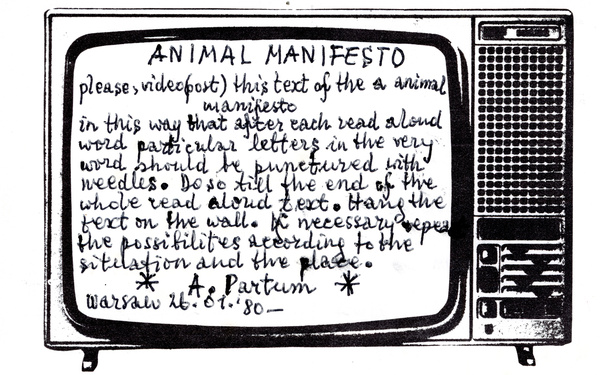 ANIMAL MANIFESTO
please, video(post) this text of the a animal
manifesto
in this way that after each read aloud
word particular letters in the very
word should be punctured with
needles. Do so till the end of the
whole read aloud text. Hang the
text on the wall. If necessary repea
the possibilities according to the
situation and the place.
* A. Partum *
Warsaw 26. 01. '80 —